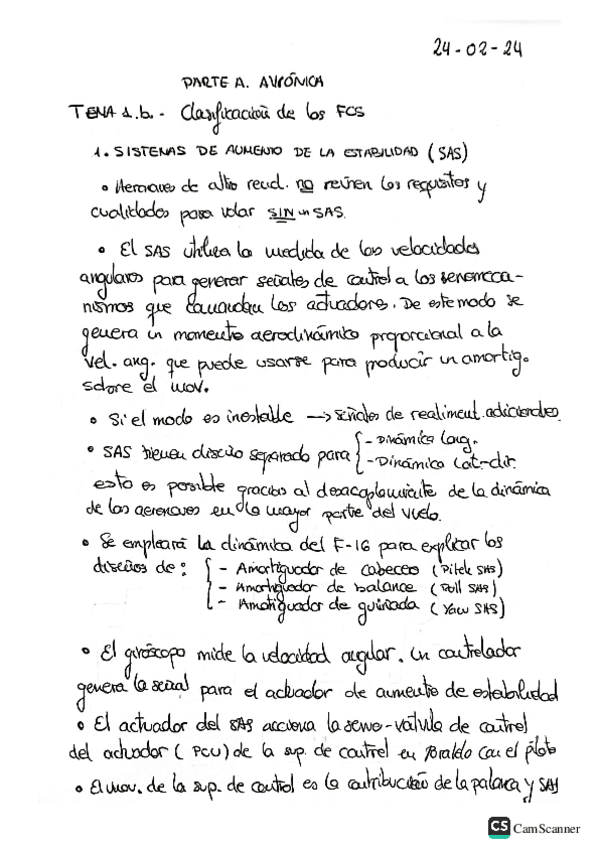 24-02-24
PARTE A. AVIÓNICA
TEMA 1.b.- Clasificación de los FCS
1. SISTEMAS DE AUMENTO DE LA ESTABILIDAD (SAS)
• Aeronaves de alto rend. no reúnen los requisitos y
cualidades para volar SIN un SAS.
• El SAS utiliza la medida de las velocidades
angulares para generar señales de control a los servomeca-
nismos que comandan los actuadores. De este modo se
genera un momento aerodinámico proporcional a la
vel. ang. que puede usarse para producir un amortig.
sobre el mov.
• Si el modo es inestable → señales de realiment. adicionales.
• SAS tienen diseño separado para { - Dinámica long.
- Dinámica lat-dir.
esto es posible gracias al desacoplamiento de la dinámica
de las aeronaves en la mayor parte del vuelo.
• Se empleará la dinámica del F-16 para explicar los
diseños de: { - Amortiguador de cabeceo (Pitch SAS)
- Amortiguador de balance (Roll SAS)
- Amortiguador de guiñada (Yaw SAS)
• El giróscopo mide la velocidad angular. Un controlador
genera la señal para el actuador de aumento de estabilidad
• El actuador del SAS acciona la servo-válvula de control
del actuador (PCU) de la sup. de control en paralelo con el piloto
• El mov. de la sup. de control es la contribución de la palanca y SAS
CS CamScanner